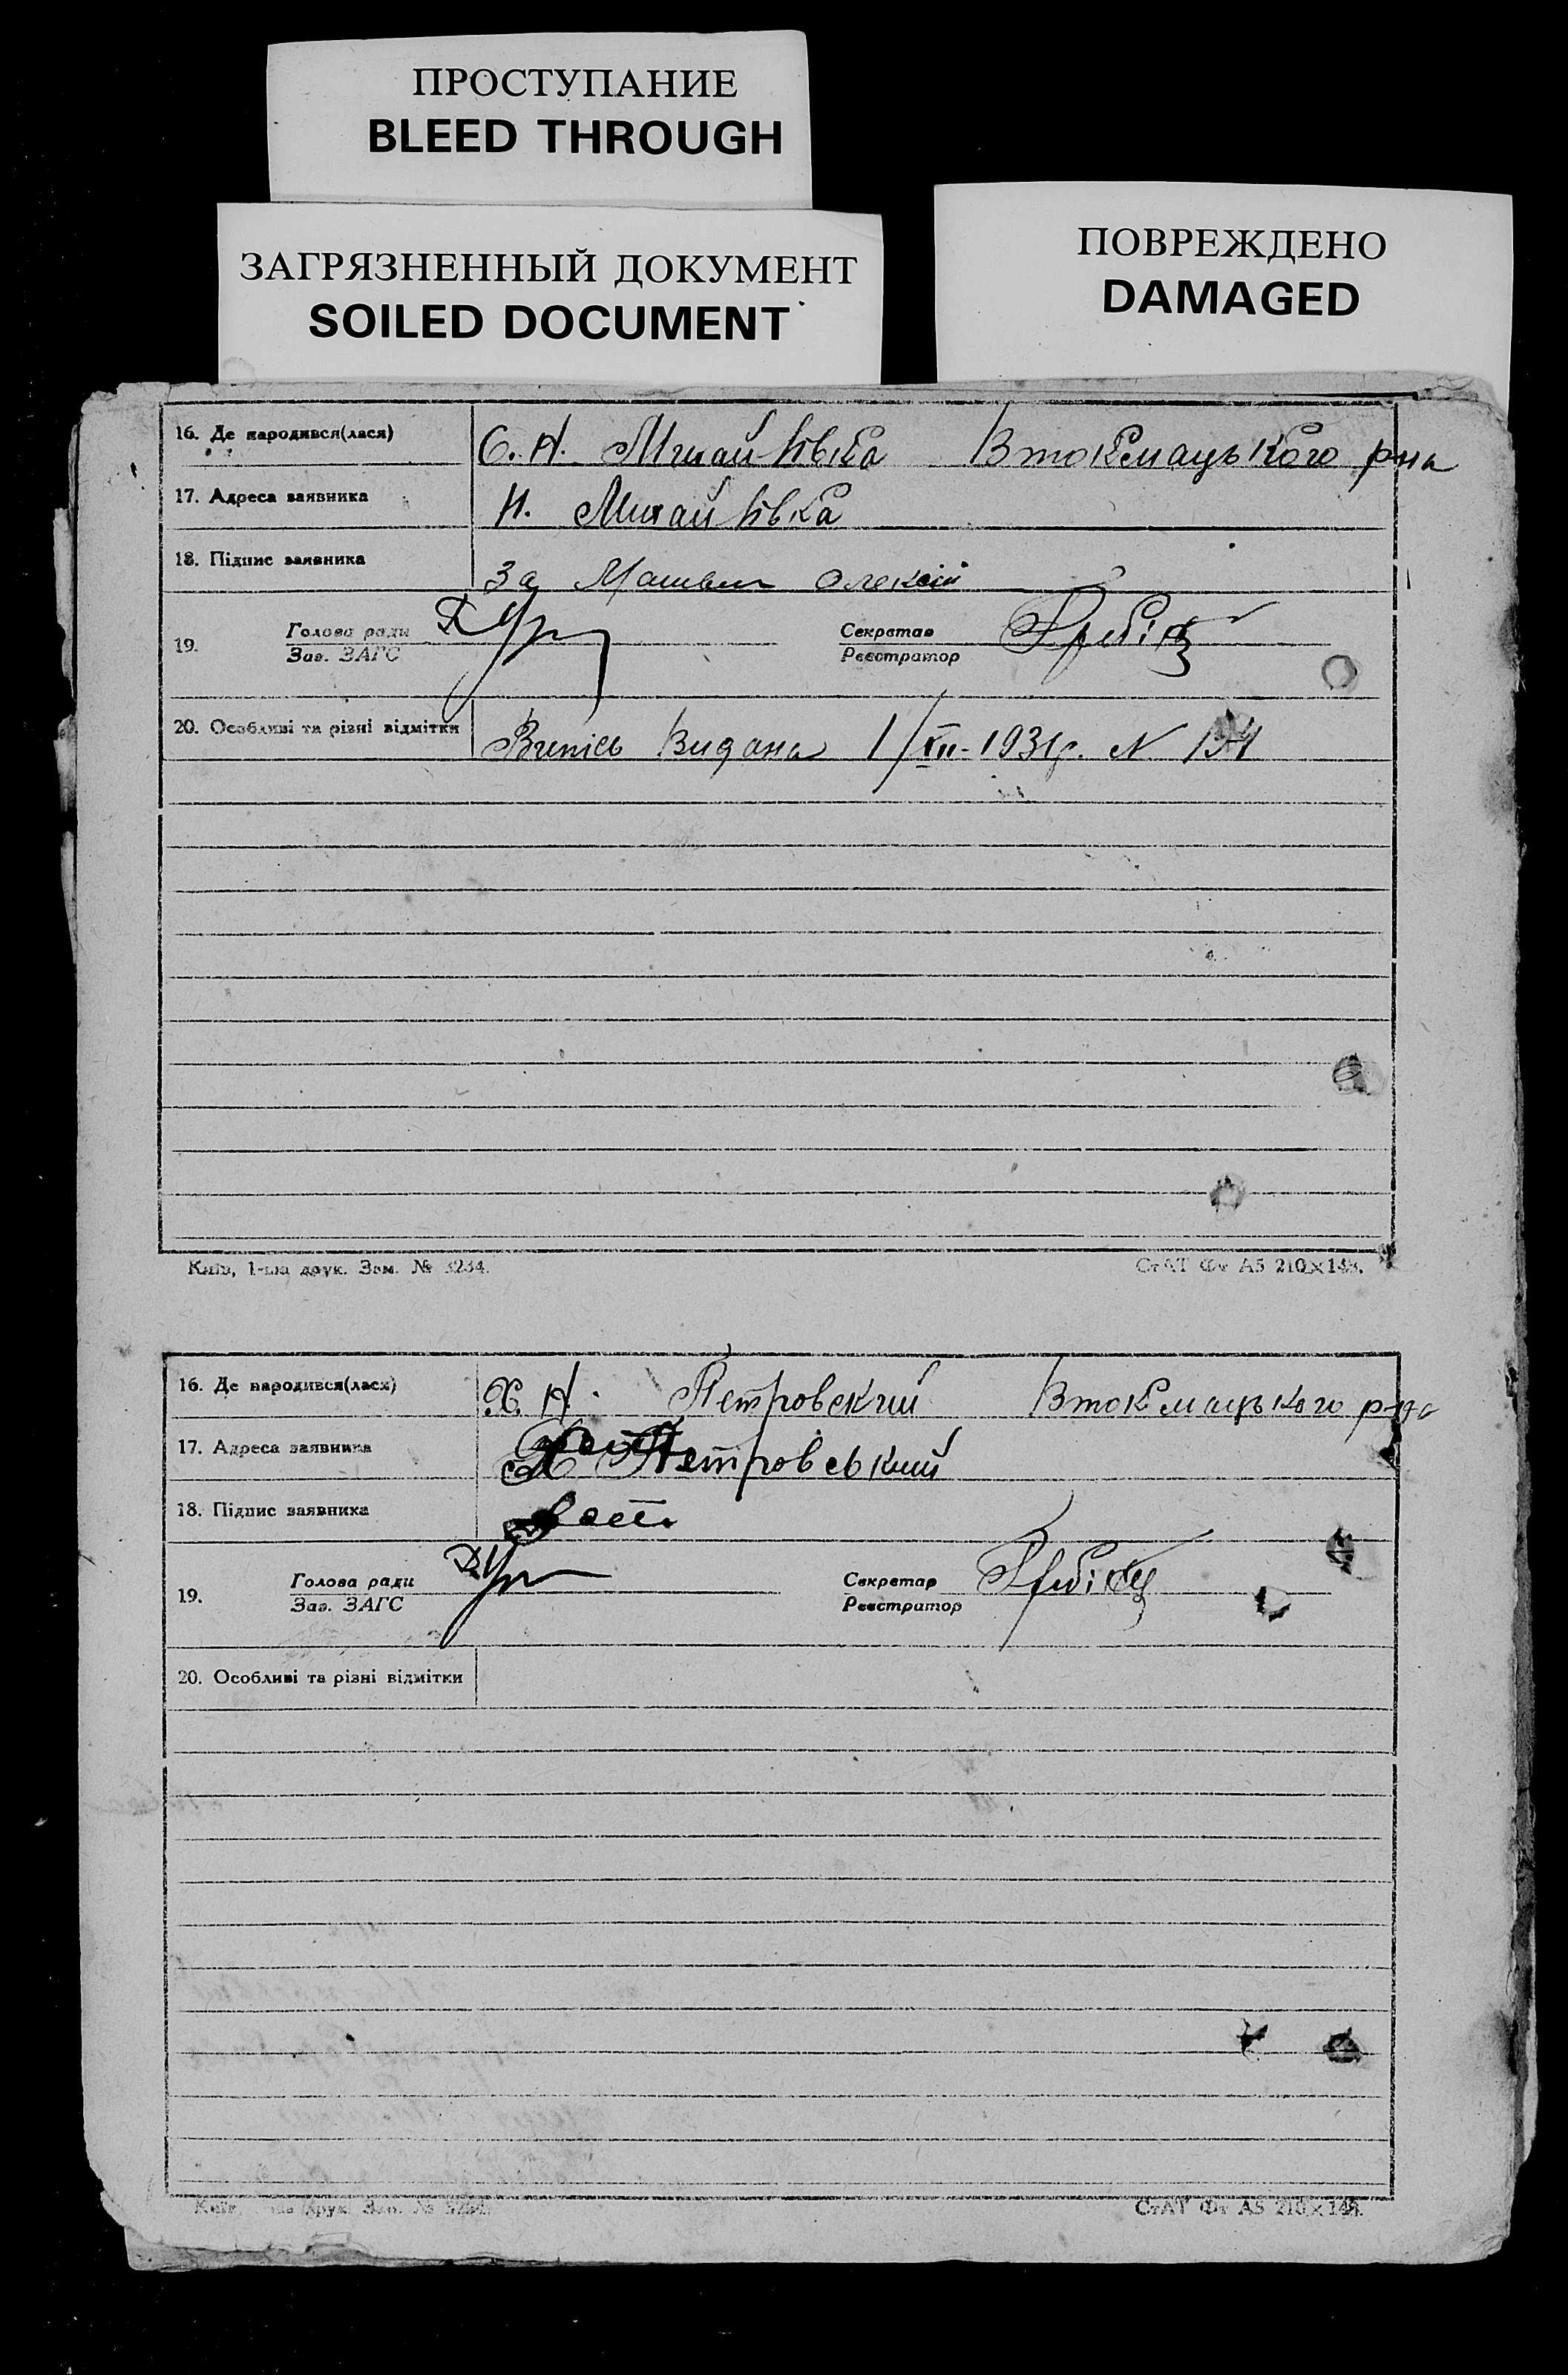 ПРОСТУПАНИЕ
BLEED THROUGH
ЗАГРЯЗНЕННЫЙ ДОКУМЕНТ
SOILED DOCUMENT
ПОВРЕЖДЕНО
DAMAGED
16. Де народився(лася) С. Н. Михайлівка Втокмацького рна
17. Адреса заявника Н. Михайлівка
18. Підпис заявника За Олексій
19. Голова ради Секретар
Зав. ЗАГС Реєстратор
20. Особливі та різні відмітки Випісь Видана 1/XII-1931р. N
Київ, 1-ша друк. Зам. № 3234. СтАТ Фт А5 210×148.
16. Де народився(лася) Х. Н. Петровский Втокмацького рна
17. Адреса заявника Х Петровський
18. Підпис заявника
19. Голова ради Секретар
Зав. ЗАГС Реєстратор
20. Особливі та різні відмітки
Київ, ша друк. Зам. № 3234. СтАТ Фт А5 210×148.